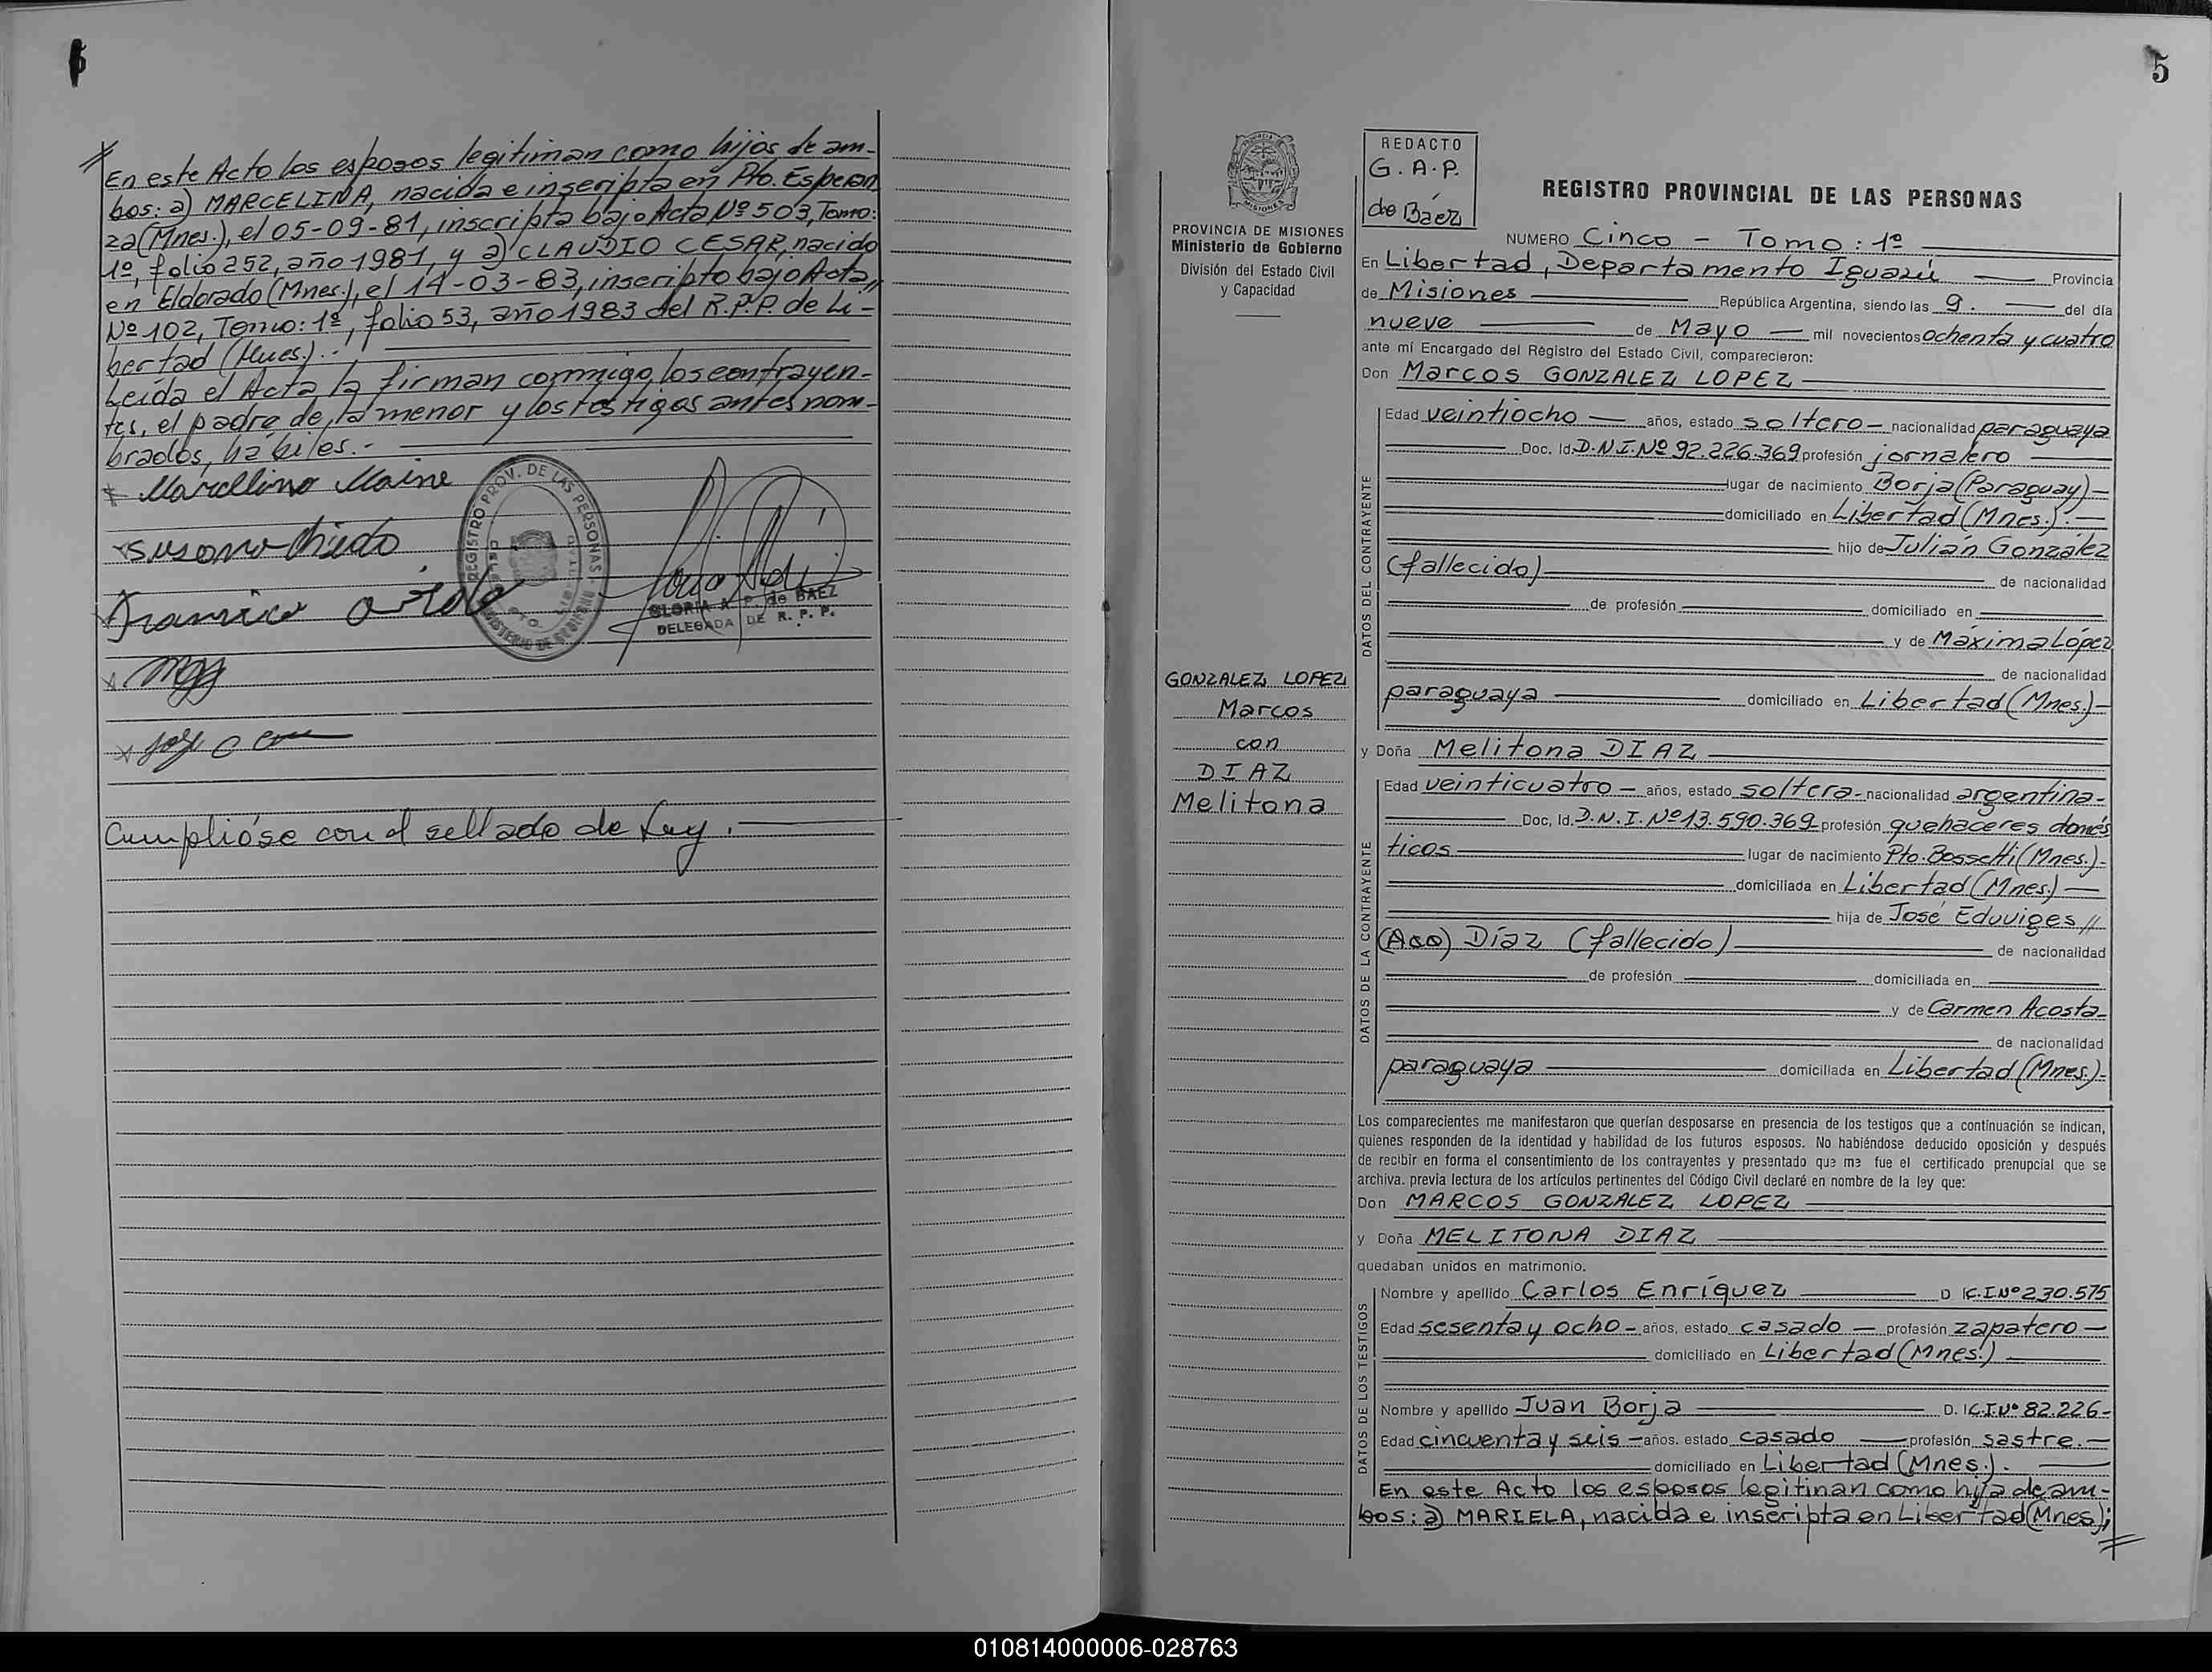 En este Acto los esposos legitiman como hijos de am-
bos: a) MARCELINA, nacida e inscripta en Pto. Esperan
za (Mnes.), el 05-09-81, inscripta bajo Acta Nº 503, Tomo:
1º, folio 252, año 1981, y a) CLAUDIO CESAR, nacido
en Eldorado (Mnes.), el 14-03-83, inscripto bajo Acta
Nº 102, Tomo: 1º, folio 53, año 1983 del R.P.P. de Li-
bertad (Mnes.).-
Leída el Acta la firman conmigo, los contrayen-
tes, el padre de la menor y los testigos antes nom-
brados, hábiles.-
Marcelino Maine
REGISTRO PROV. DE LAS PERSONAS
GLORIA A. P. de BAEZ
DELEGADA DE R. P. P.
Cumplióse con el sellado de Ley.
5
PROVINCIA DE MISIONES
Ministerio de Gobierno
División del Estado Civil
y Capacidad
GONZALEZ LOPEZ
Marcos
con
DIAZ
Melitona
REDACTO
G. A. P.
de Báez
REGISTRO PROVINCIAL DE LAS PERSONAS
NUMERO Cinco - Tomo: 1º
En Libertad, Departamento Iguazú Provincia
de Misiones República Argentina, siendo las 9. del día
nueve de Mayo mil novecientos ochenta y cuatro
ante mí Encargado del Registro del Estado Civil, comparecieron:
Don Marcos GONZALEZ LOPEZ
DATOS DEL CONTRAYENTE
Edad veintiocho años, estado soltero - nacionalidad paraguaya
Doc. Id. D.N.I. Nº 92.226.369 profesión jornalero
lugar de nacimiento Borja (Paraguay) -
domiciliado en Libertad (Mnes.). -
hijo de Julián González
(fallecido) de nacionalidad
de profesión domiciliado en
y de Máxima López
de nacionalidad
paraguaya domiciliado en Libertad (Mnes.) -
y Doña Melitona DIAZ
DATOS DE LA CONTRAYENTE
Edad veinticuatro - años, estado soltera - nacionalidad argentina -
Doc. Id. D.N.I. Nº 13.590.369 profesión quehaceres domés
ticos lugar de nacimiento Pto. Bossetti (Mnes.) -
domiciliada en Libertad (Mnes.) -
hija de José Eduviges //
Díaz (fallecido) de nacionalidad
de profesión domiciliada en
y de Carmen Acosta -
de nacionalidad
paraguaya domiciliada en Libertad (Mnes.) -
Los comparecientes me manifestaron que querían desposarse en presencia de los testigos que a continuación se indican,
quienes responden de la identidad y habilidad de los futuros esposos. No habiéndose deducido oposición y después
de recibir en forma el consentimiento de los contrayentes y presentado que me fue el certificado prenupcial que se
archiva. previa lectura de los artículos pertinentes del Código Civil declaré en nombre de la ley que:
Don MARCOS GONZALEZ LOPEZ
y Doña MELITONA DIAZ
quedaban unidos en matrimonio.
DATOS DE LOS TESTIGOS
Nombre y apellido Carlos Enríquez D. I C.I Nº 230.575
Edad sesenta y ocho - años, estado casado - profesión zapatero -
domiciliado en Libertad (Mnes.)
Nombre y apellido Juan Borja D. I C.I Nº 82.226 -
Edad cincuenta y seis - años. estado casado - profesión sastre. -
domiciliado en Libertad (Mnes.).
En este Acto los esposos legitiman como hija de am-
bos: a) MARIELA, nacida e inscripta en Libertad (Mnes.);
010814000006-028763